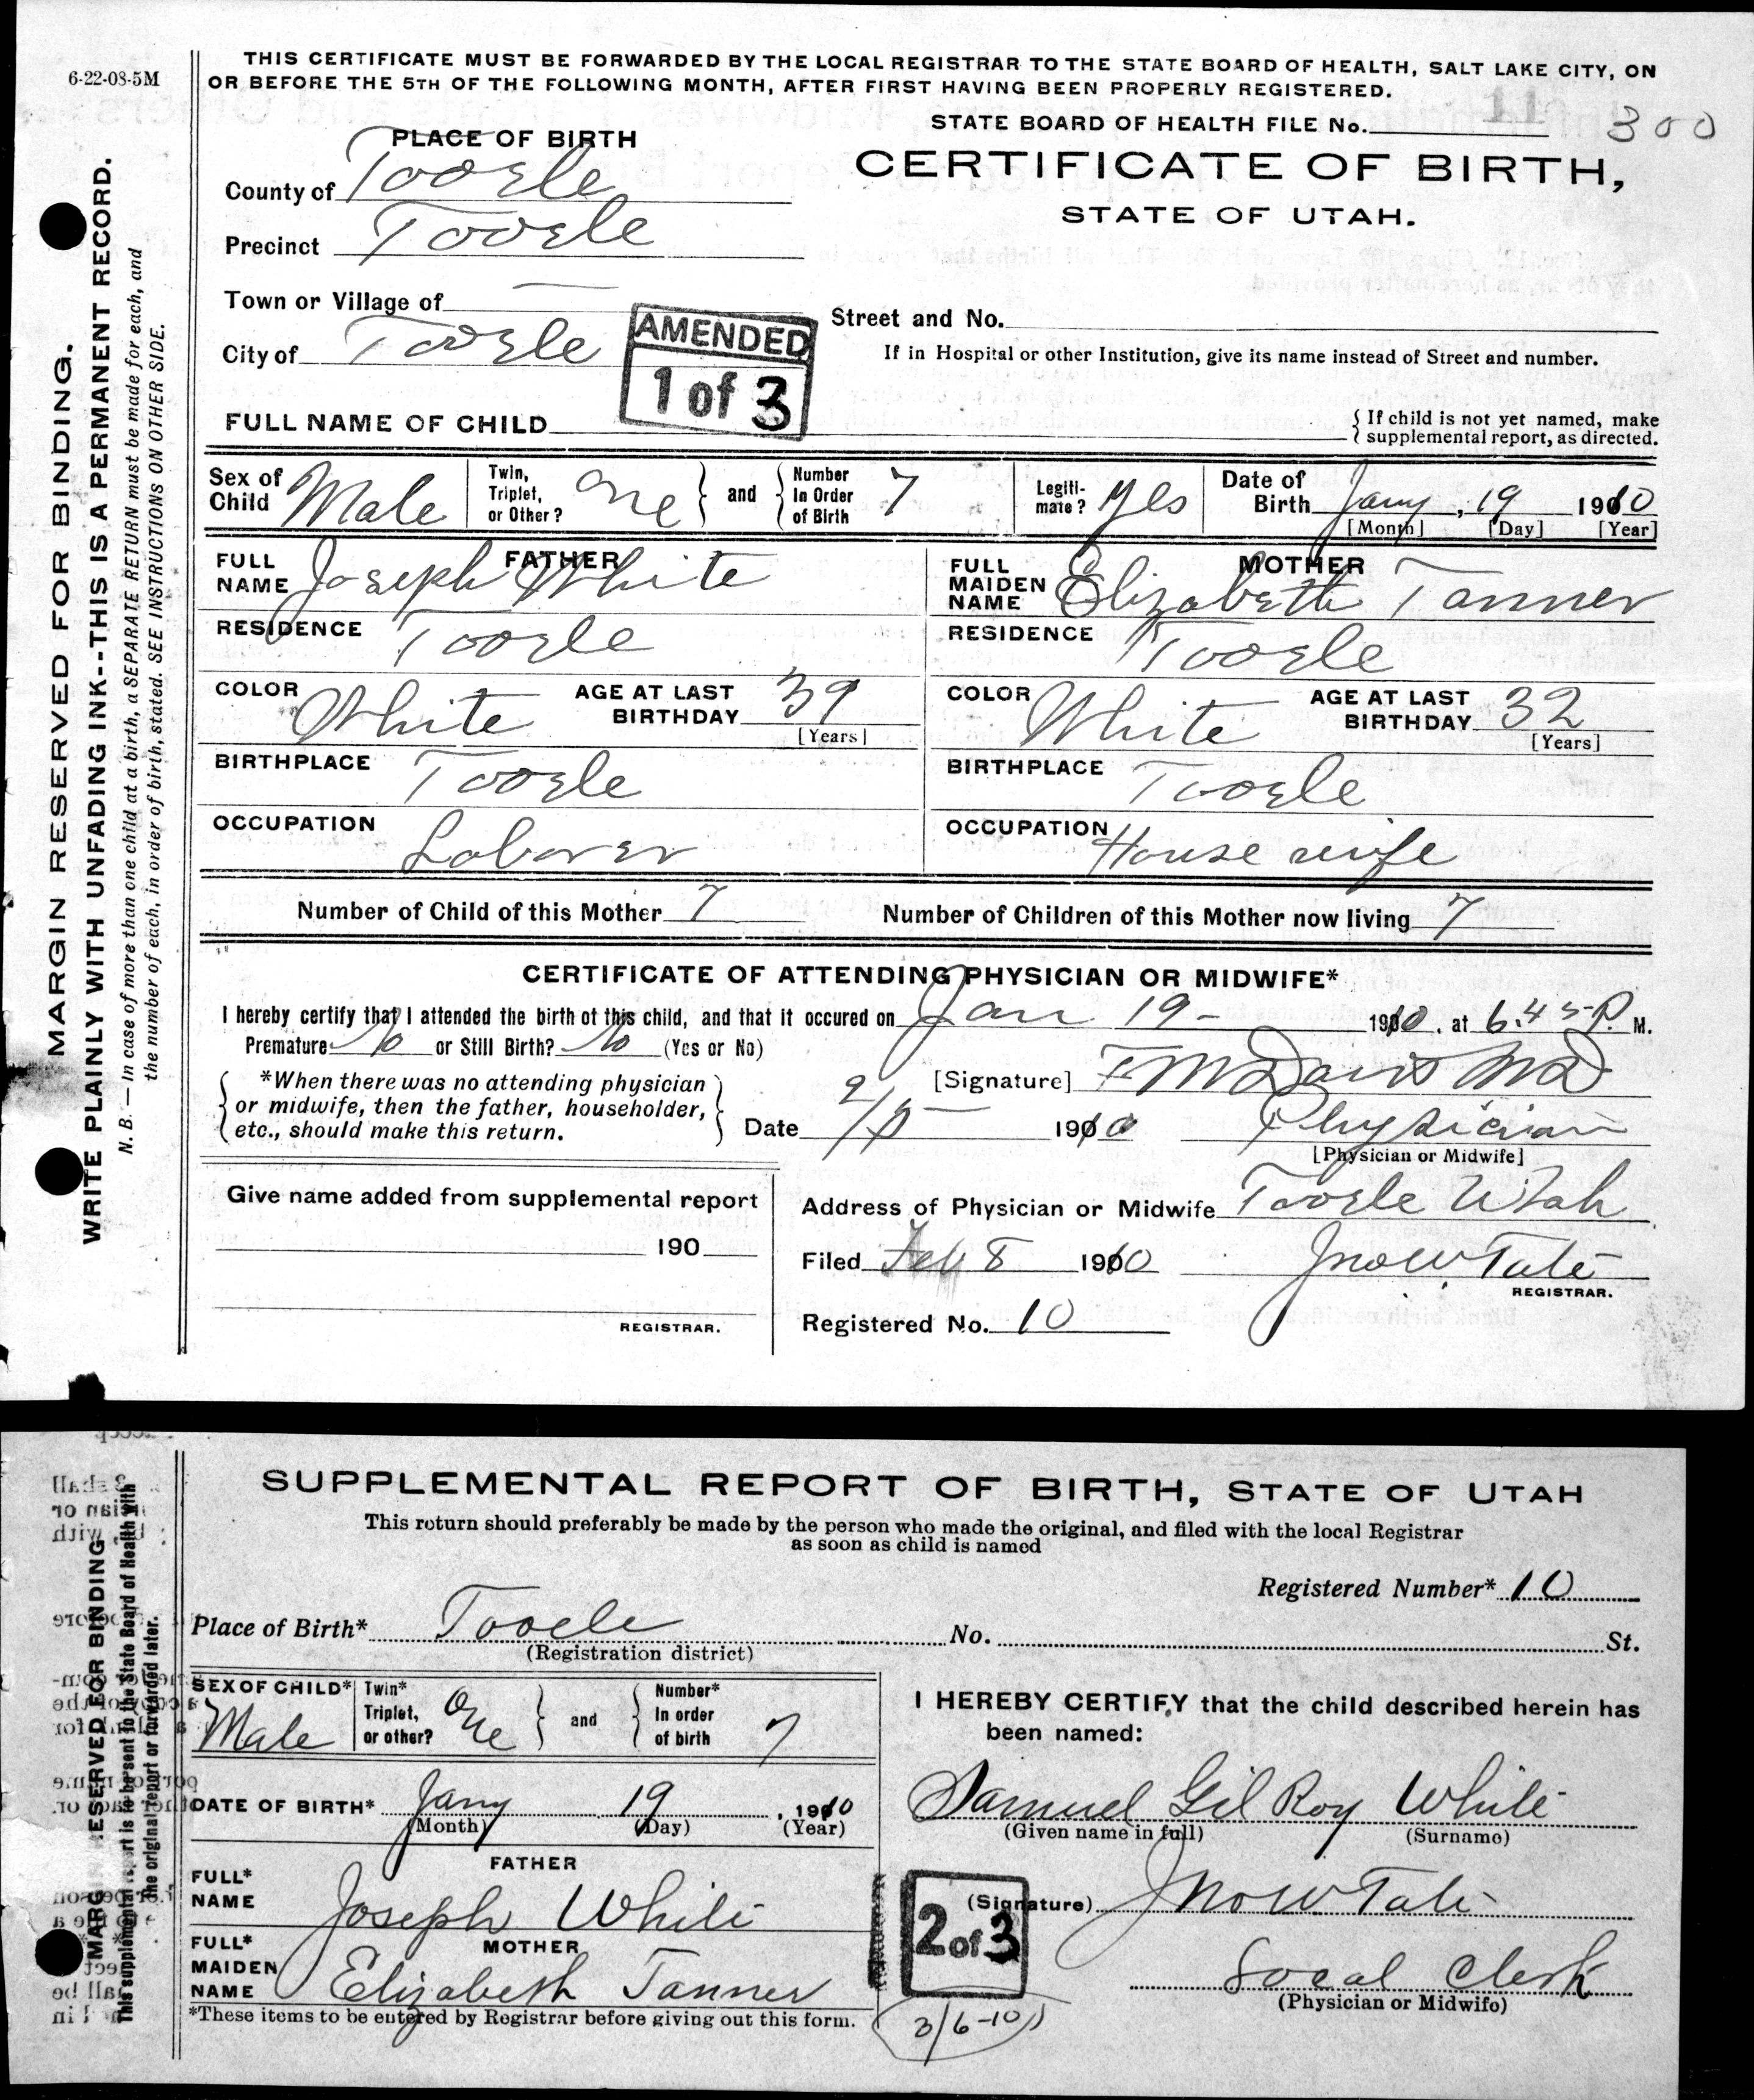 6-22-08-5M
THIS CERTIFICATE MUST BE FORWARDED BY THE LOCAL REGISTRAR TO THE STATE BOARD OF HEALTH, SALT LAKE CITY, ON
OR BEFORE THE 5TH OF THE FOLLOWING MONTH, AFTER FIRST HAVING BEEN PROPERLY REGISTERED.
STATE BOARD OF HEALTH FILE No. 11 300
PLACE OF BIRTH
CERTIFICATE OF BIRTH,
STATE OF UTAH.
County of Tooele
Precinct Tooele
Town or Village of —
Street and No.
City of Tooele
If in Hospital or other Institution, give its name instead of Street and number.
AMENDED
1 of 3
FULL NAME OF CHILD
{ If child is not yet named, make
supplemental report, as directed.
Sex of Child Male
Twin, Triplet, or Other? One } and { Number In Order of Birth 7
Legiti-mate? Yes
Date of Birth Jany, 19 1910
[Month] [Day] [Year]
FATHER
FULL NAME Joseph White
RESIDENCE Tooele
COLOR White AGE AT LAST BIRTHDAY 39
[Years]
BIRTHPLACE Tooele
OCCUPATION Laborer
MOTHER
FULL MAIDEN NAME Elizabeth Tanner
RESIDENCE Tooele
COLOR White AGE AT LAST BIRTHDAY 32
[Years]
BIRTHPLACE Tooele
OCCUPATION House wife
Number of Child of this Mother 7 Number of Children of this Mother now living 7
CERTIFICATE OF ATTENDING PHYSICIAN OR MIDWIFE*
I hereby certify that I attended the birth of this child, and that it occured on Jan 19 - 1910, at 6.45 P. M.
Premature No or Still Birth? No (Yes or No)
{ *When there was no attending physician
or midwife, then the father, householder,
etc., should make this return. }
[Signature] F M Davis MD
Date 2/5 1910 Physician
[Physician or Midwife]
Give name added from supplemental report
190
REGISTRAR.
Address of Physician or Midwife Tooele Utah
Filed Feb 8 1910 Jno W Tate
REGISTRAR.
Registered No. 10
MARGIN RESERVED FOR BINDING.
WRITE PLAINLY WITH UNFADING INK--THIS IS A PERMANENT RECORD.
N. B. — In case of more than one child at a birth, a SEPARATE RETURN must be made for each, and
the number of each, in order of birth, stated. SEE INSTRUCTIONS ON OTHER SIDE.
SUPPLEMENTAL REPORT OF BIRTH, STATE OF UTAH
This return should preferably be made by the person who made the original, and filed with the local Registrar
as soon as child is named
Registered Number* 10
Place of Birth* Tooele No. St.
(Registration district)
SEX OF CHILD* Male
Twin* Triplet, or other? One } and { Number* In order of birth 7
DATE OF BIRTH* Jany 19, 1910
(Month) (Day) (Year)
FATHER
FULL* NAME Joseph White
MOTHER
FULL* MAIDEN NAME Elizabeth Tanner
*These items to be entered by Registrar before giving out this form.
I HEREBY CERTIFY that the child described herein has
been named:
Samuel Gil Roy White
(Given name in full) (Surname)
(Signature) Jno W Tate
2 of 3
Local Clerk
(Physician or Midwife)
3/6-10
MARGIN RESERVED FOR BINDING
This supplemental report is to be sent to the State Board of Health with
the original report or forwarded later.